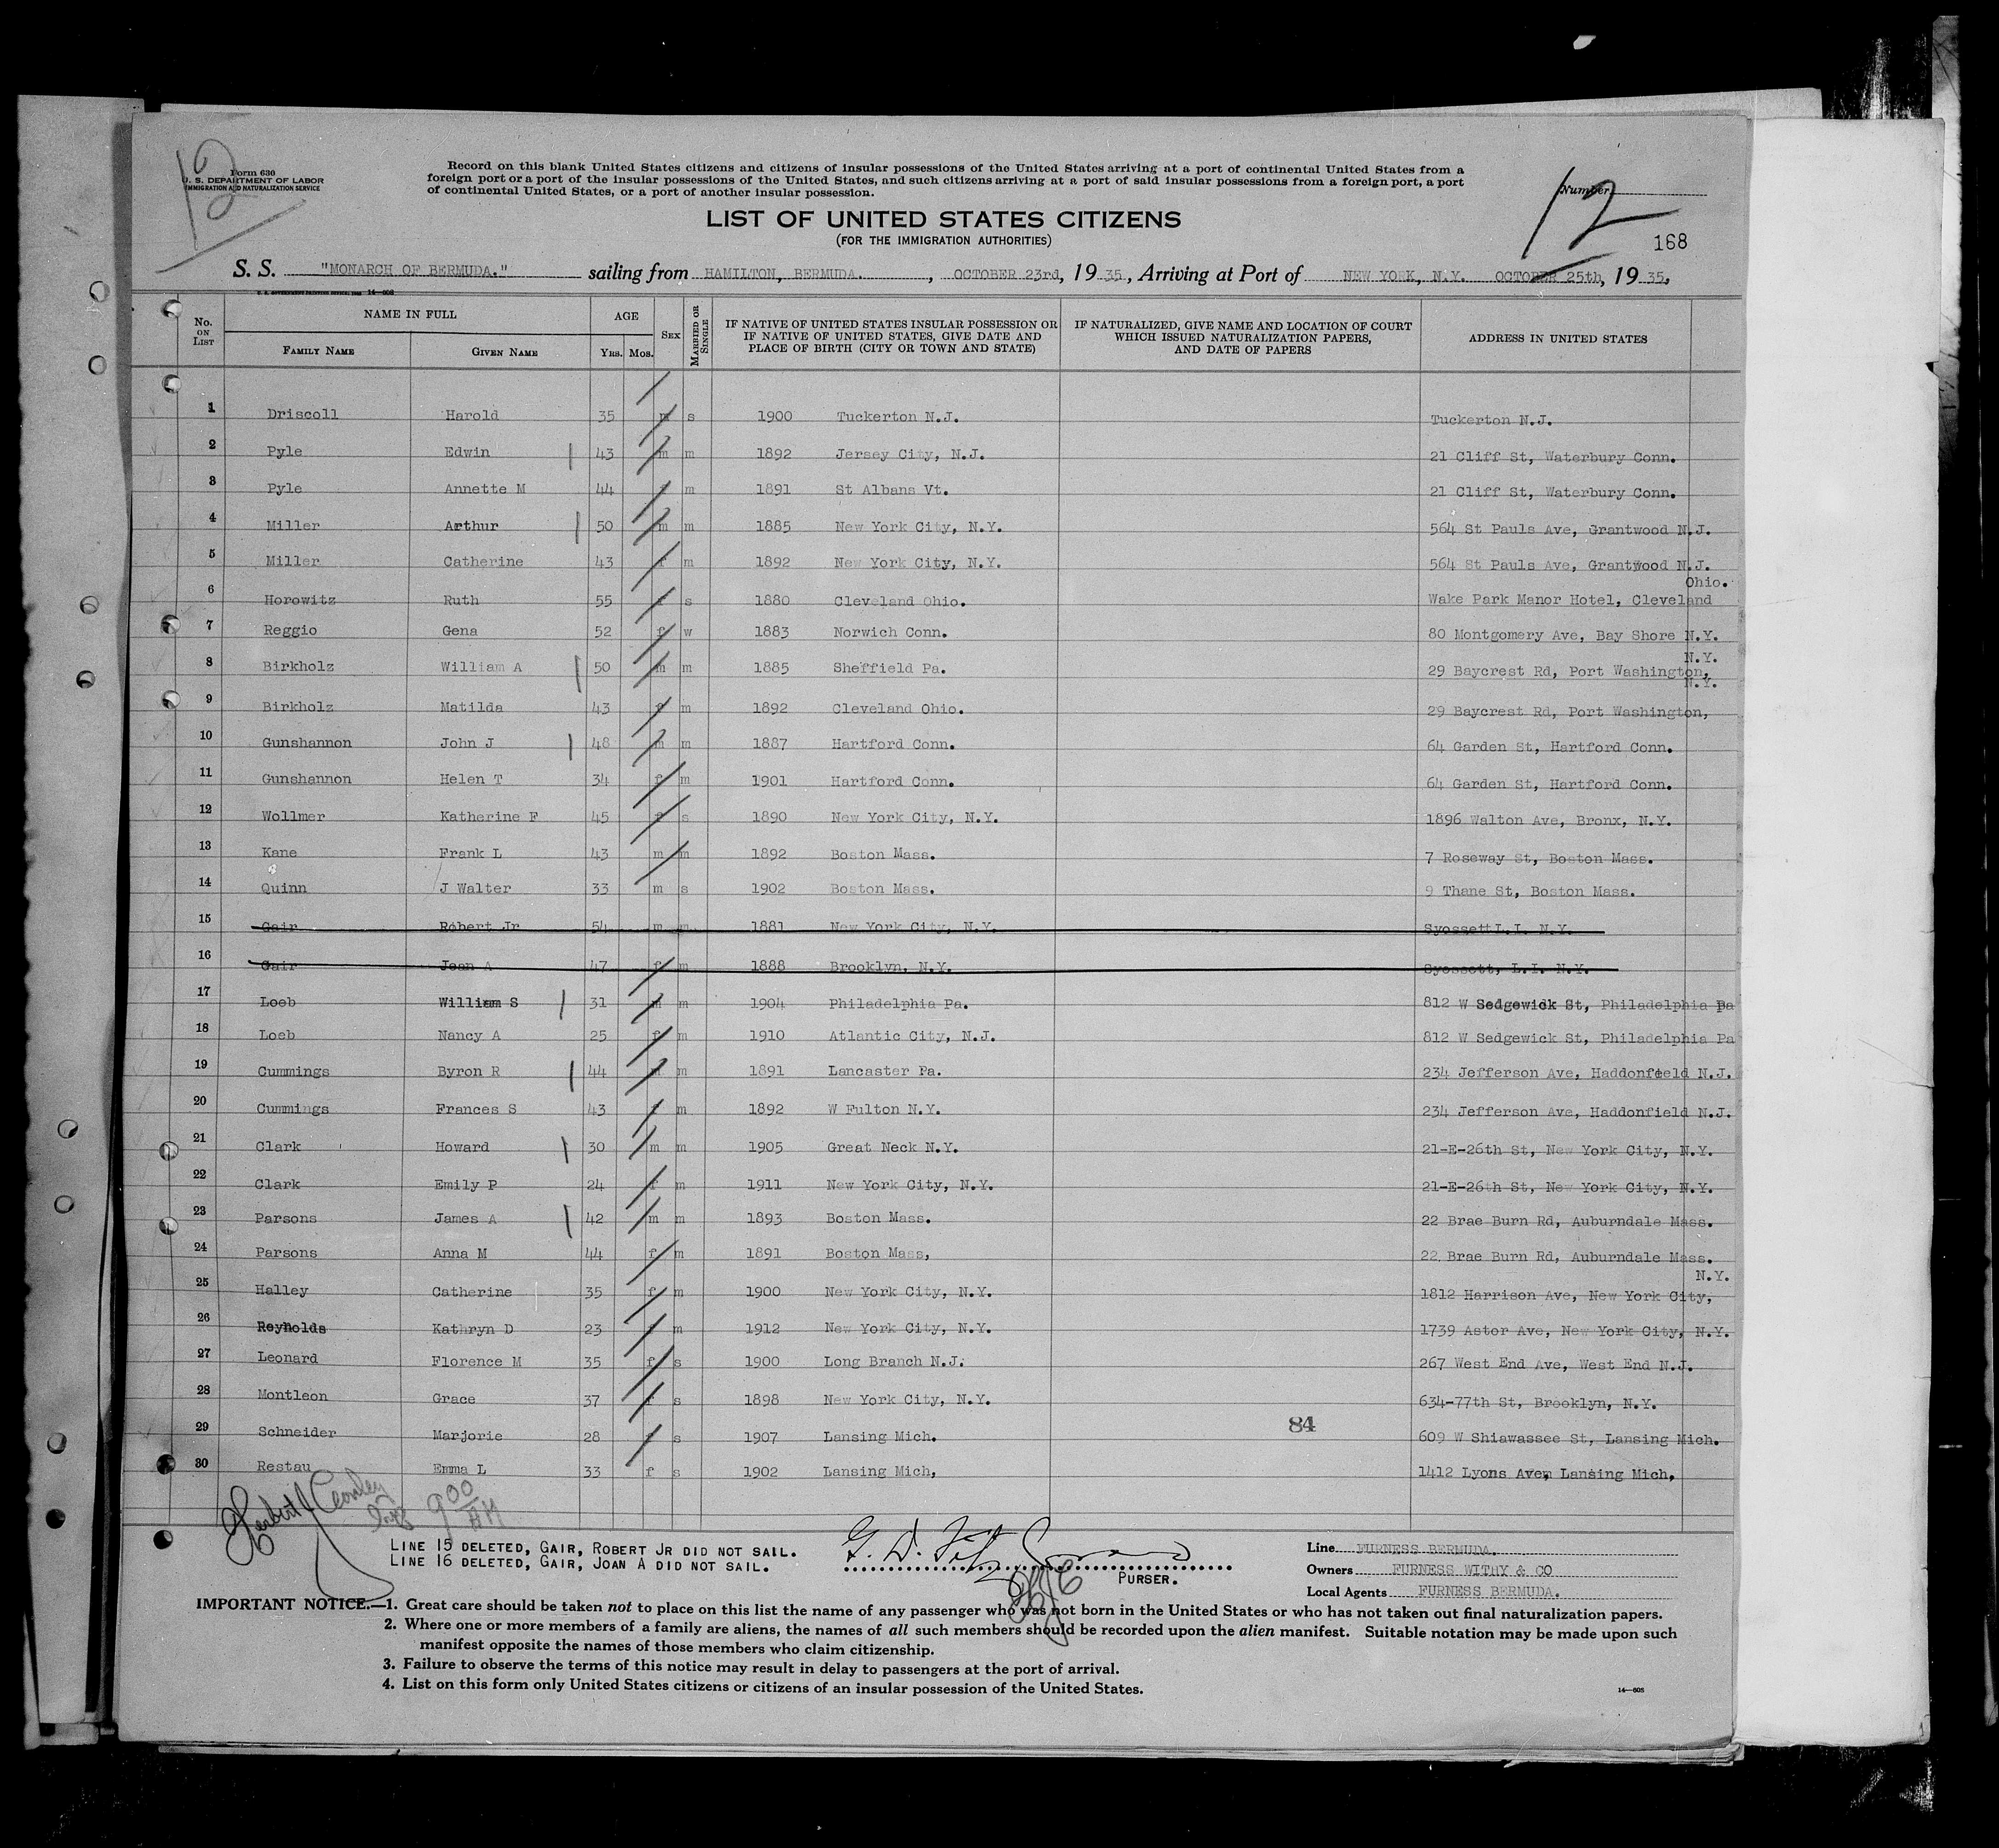 12
Form 630
U. S. DEPARTMENT OF LABOR
IMMIGRATION AND NATURALIZATION SERVICE
Record on this blank United States citizens and citizens of insular possessions of the United States arriving at a port of continental United States from a
foreign port or a port of the insular possessions of the United States, and such citizens arriving at a port of said insular possessions from a foreign port, a port
of continental United States, or a port of another insular possession.
Number
12
168
LIST OF UNITED STATES CITIZENS
(FOR THE IMMIGRATION AUTHORITIES)
S. S. "MONARCH OF BERMUDA." sailing from HAMILTON, BERMUDA. , OCTOBER 23rd, 1935, Arriving at Port of NEW YORK, N.Y. OCTOBER 25th, 1935,
No. ON LIST NAME IN FULL FAMILY NAME GIVEN NAME AGE YRS. MOS. SEX MARRIED OR SINGLE IF NATIVE OF UNITED STATES INSULAR POSSESSION OR IF NATIVE OF UNITED STATES, GIVE DATE AND PLACE OF BIRTH (CITY OR TOWN AND STATE) IF NATURALIZED, GIVE NAME AND LOCATION OF COURT WHICH ISSUED NATURALIZATION PAPERS, AND DATE OF PAPERS ADDRESS IN UNITED STATES
1 Driscoll Harold 35 m s 1900 Tuckerton N.J. Tuckerton N.J.
2 Pyle Edwin 43 m m 1892 Jersey City, N.J. 21 Cliff St, Waterbury Conn.
3 Pyle Annette M 44 f m 1891 St Albans Vt. 21 Cliff St, Waterbury Conn.
4 Miller Arthur 50 m m 1885 New York City, N.Y. 564 St Pauls Ave, Grantwood N.J.
5 Miller Catherine 43 f m 1892 New York City, N.Y. 564 St Pauls Ave, Grantwood N.J.
6 Horowitz Ruth 55 f s 1880 Cleveland Ohio. Wake Park Manor Hotel, Cleveland Ohio.
7 Reggio Gena 52 f w 1883 Norwich Conn. 80 Montgomery Ave, Bay Shore N.Y.
8 Birkholz William A 50 m m 1885 Sheffield Pa. 29 Baycrest Rd, Port Washington, N.Y.
9 Birkholz Matilda 43 f m 1892 Cleveland Ohio. 29 Baycrest Rd, Port Washington, N.Y.
10 Gunshannon John J 48 m m 1887 Hartford Conn. 64 Garden St, Hartford Conn.
11 Gunshannon Helen T 34 f m 1901 Hartford Conn. 64 Garden St, Hartford Conn.
12 Wollmer Katherine F 45 f s 1890 New York City, N.Y. 1896 Walton Ave, Bronx, N.Y.
13 Kane Frank L 43 m m 1892 Boston Mass. 7 Roseway St, Boston Mass.
14 Quinn J Walter 33 m s 1902 Boston Mass. 9 Thane St, Boston Mass.
15 Gair Robert Jr 54 m m 1881 New York City, N.Y. Syossett L.I. N.Y.
16 Gair Joan A 47 f m 1888 Brooklyn, N.Y. Syossett, L.I. N.Y.
17 Loeb William S 31 m m 1904 Philadelphia Pa. 812 W Sedgewick St, Philadelphia Pa
18 Loeb Nancy A 25 f m 1910 Atlantic City, N.J. 812 W Sedgewick St, Philadelphia Pa
19 Cummings Byron R 44 m m 1891 Lancaster Pa. 234 Jefferson Ave, Haddonfield N.J.
20 Cummings Frances S 43 f m 1892 W Fulton N.Y. 234 Jefferson Ave, Haddonfield N.J.
21 Clark Howard 30 m m 1905 Great Neck N.Y. 21-E-26th St, New York City, N.Y.
22 Clark Emily P 24 f m 1911 New York City, N.Y. 21-E-26th St, New York City, N.Y.
23 Parsons James A 42 m m 1893 Boston Mass. 22 Brae Burn Rd, Auburndale Mass.
24 Parsons Anna M 44 f m 1891 Boston Mass, 22 Brae Burn Rd, Auburndale Mass.
25 Halley Catherine 35 f m 1900 New York City, N.Y. 1812 Harrison Ave, New York City, N.Y.
26 Reynolds Kathryn D 23 f m 1912 New York City, N.Y. 1739 Astor Ave, New York City, N.Y.
27 Leonard Florence M 35 f s 1900 Long Branch N.J. 267 West End Ave, West End N.J.
28 Montleon Grace 37 f s 1898 New York City, N.Y. 634-77th St, Brooklyn, N.Y.
84
29 Schneider Marjorie 28 f s 1907 Lansing Mich. 609 W Shiawassee St, Lansing Mich.
30 Restau Emma L 33 f s 1902 Lansing Mich, 1412 Lyons Ave, Lansing Mich,
Herbert J 9 00 AM
LINE 15 DELETED, GAIR, ROBERT JR DID NOT SAIL.
LINE 16 DELETED, GAIR, JOAN A DID NOT SAIL.
G. D.
PURSER.
Line FURNESS BERMUDA.
Owners FURNESS WITHY & CO
Local Agents FURNESS BERMUDA.
IMPORTANT NOTICE.—1. Great care should be taken not to place on this list the name of any passenger who was not born in the United States or who has not taken out final naturalization papers.
2. Where one or more members of a family are aliens, the names of all such members should be recorded upon the alien manifest. Suitable notation may be made upon such
manifest opposite the names of those members who claim citizenship.
3. Failure to observe the terms of this notice may result in delay to passengers at the port of arrival.
4. List on this form only United States citizens or citizens of an insular possession of the United States.
14—605